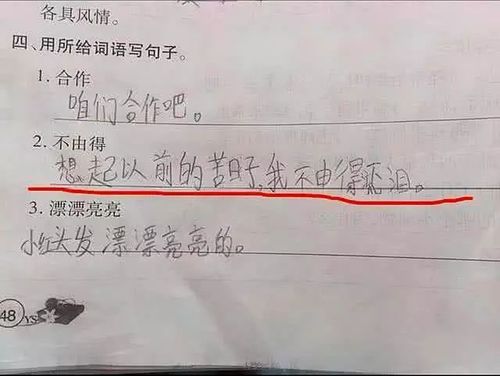 各具风情。
四、用所给词语写句子。
1. 合作
咱们合作吧。
2. 不由得
想起以前的苦日子,我不由得流泪。
3. 漂漂亮亮
小红头发漂漂亮亮的。
48